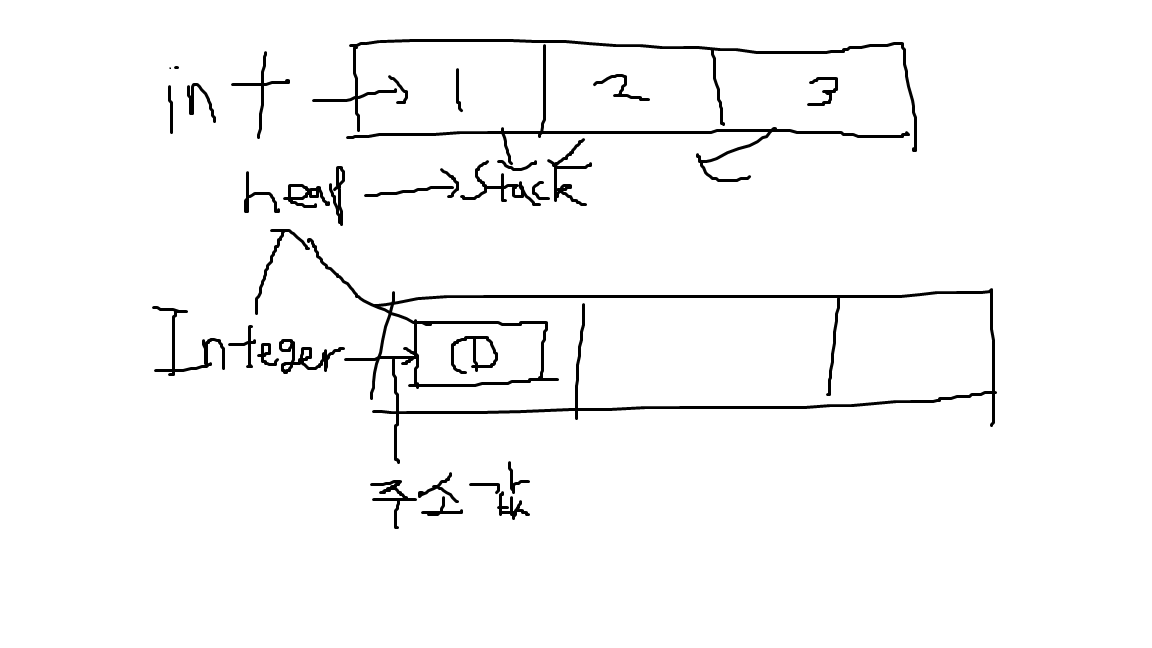 int → 1 2 3
heap → Stack
Integer → 1
주소값